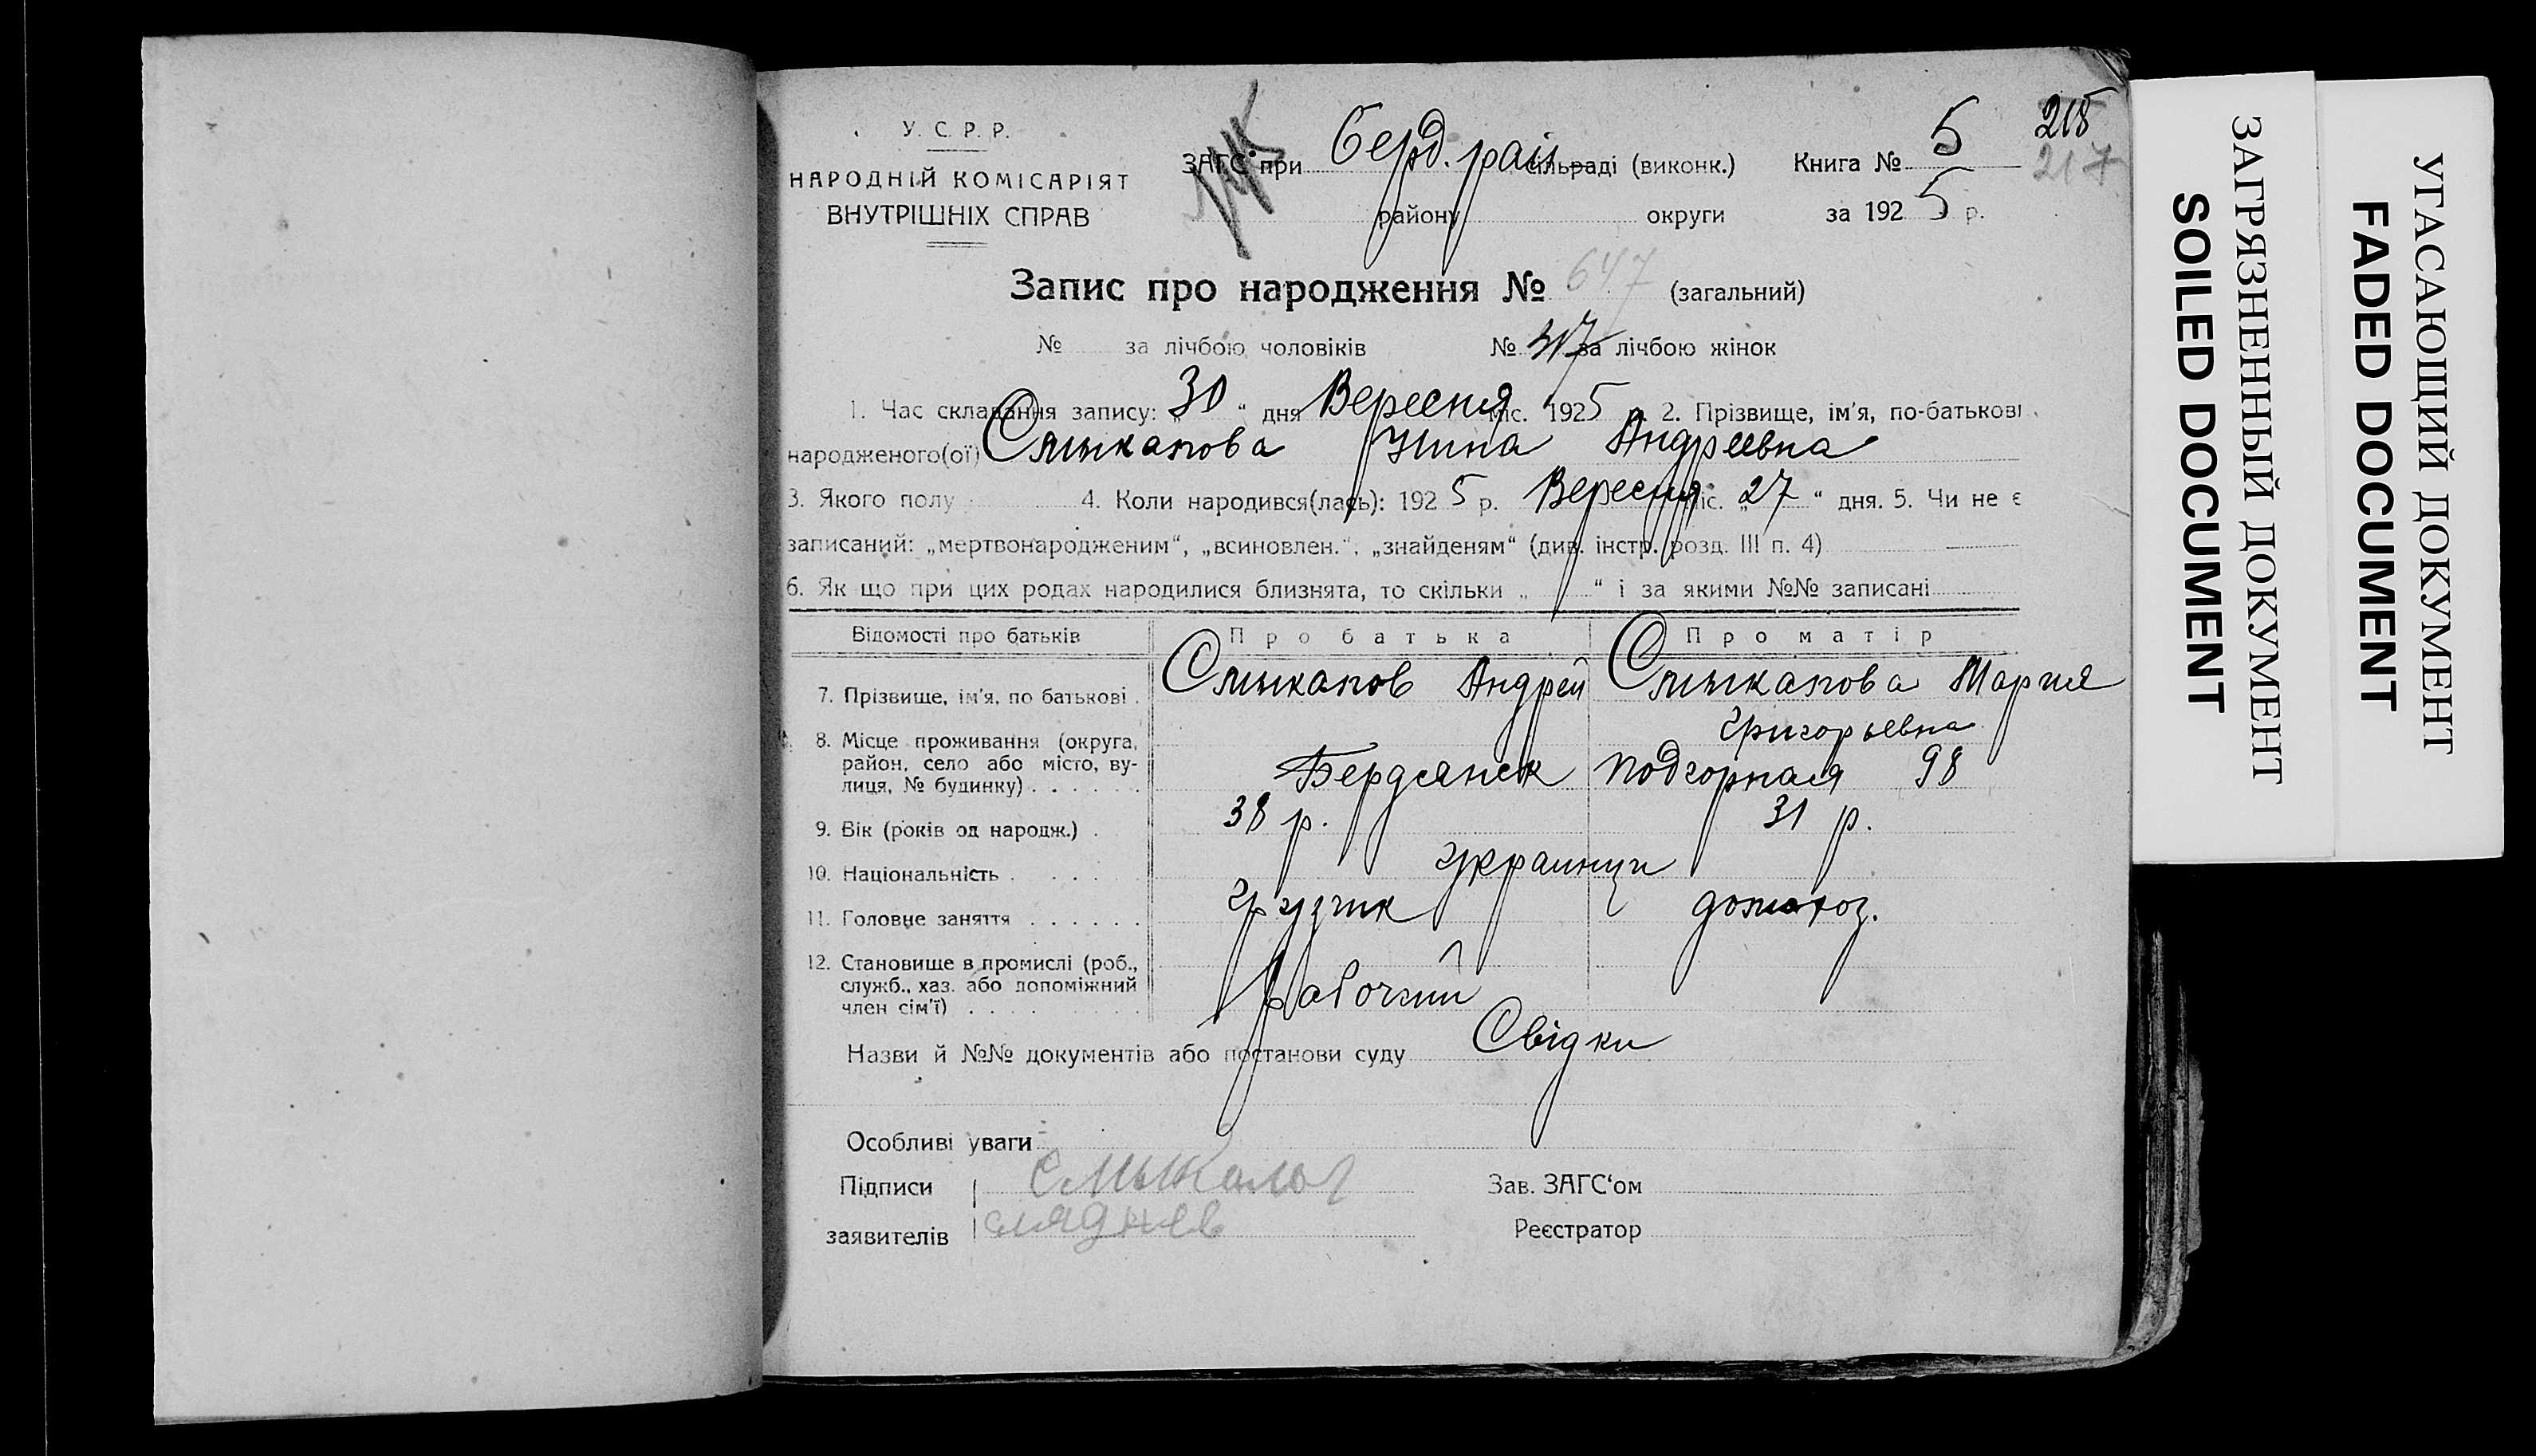 У. С. Р. Р.
НАРОДНІЙ КОМІСАРІЯТ
ВНУТРІШНІХ СПРАВ
ЗАГС при Берд. рай сільраді (виконк.) Книга № 5
215
217
району округи за 1925 р.
Запис про народження № 647 (загальний)
№ за лічбою чоловіків № 317 за лічбою жінок
1. Час складання запису: „30“ дня Вересня міс. 1925 р. 2. Прізвище, ім'я, по-батькові
народженого(ої) Смыкалова Нина Андреевна
3. Якого полу 4. Коли народився(лась): 1925 р. Вересня міс. „27“ дня. 5. Чи не є
записаний: „мертвонародженим“, „всиновлен.“, „знайденям“ (див. інстр. розд. III п. 4)
6. Як що при цих родах народилися близнята, то скільки „ “ і за якими №№ записані
Відомості про батьків Про батька Про матір
7. Прізвище, ім'я, по батькові . Смыкалов Андрей Смыкалова Мария
Григорьевна
8. Місце проживання (округа,
район, село або місто, ву-
лиця, № будинку) . . . . . . Бердянск Подгорная 98
9. Вік (років од народж.) . 38 р. 31 р.
10. Національність . . . . . украинци
11. Головне заняття . . . . . . грузчик домохоз.
12. Становище в промислі (роб.,
служб., хаз. або допоміжний
член сім'ї) . . . . . . . . . Рабочий
Назви й №№ документів або постанови суду Свідки
Особливі уваги
Підписи Смыкалов Зав. ЗАГС'ом
заявителів Реєстратор
ЗАГРЯЗНЕННЫЙ ДОКУМЕНТ
SOILED DOCUMENT
УГАСАЮЩИЙ ДОКУМЕНТ
FADED DOCUMENT